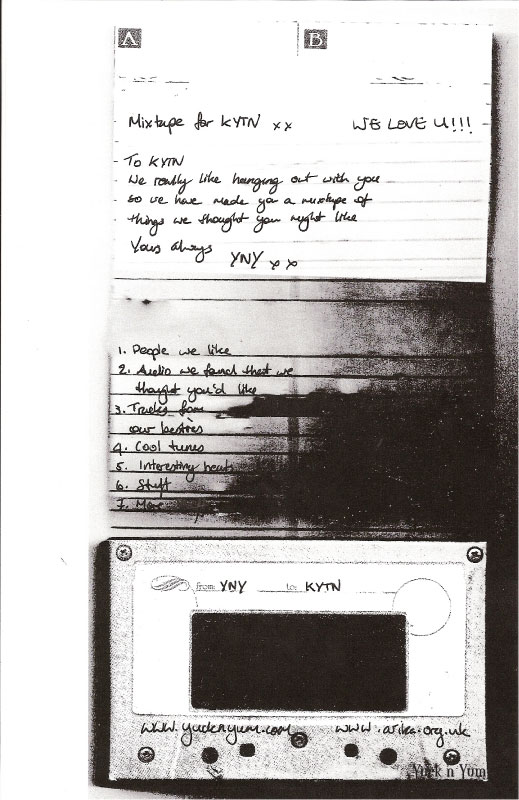 A B
Mixtape for KYTN xx WE LOVE U!!!
To KYTN
We really like hanging out with you
so we have made you a mixtape of
things we thought you might like
Yours always
YNY xx
1. People we like
2. Audio we found that we
thought you'd like
3. Tracks from
our besties
4. Cool tunes
5. Interesting beats
6. Stuff
7. More
from: YNY to: KYTN
www.yucknyum.com www.arika.org.uk
Yuck n Yum